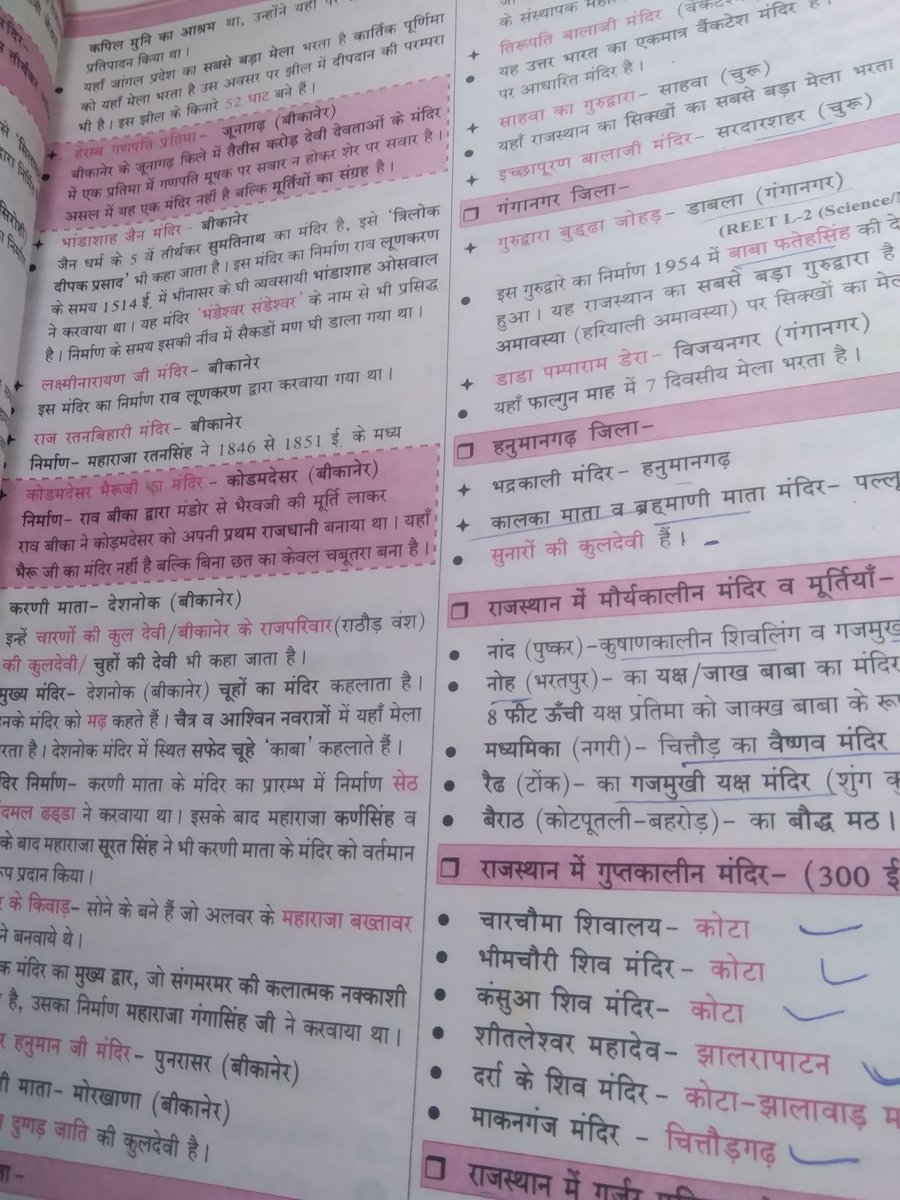 कपिल मुनि का आश्रम था, उन्होंने यहाँ पर
प्रतिपादन किया था।
यहाँ जांगल प्रदेश का सबसे बड़ा मेला भरता है कार्तिक पूर्णिमा
को यहाँ मेला भरता है उस अवसर पर झील में दीपदान की परम्परा
भी है। इस झील के किनारे 52 घाट बने हैं।
हेरम्ब गणपति प्रतिमा- जूनागढ़ (बीकानेर)
बीकानेर के जूनागढ़ किले में तैतीस करोड़ देवी देवताओं के मंदिर
में एक प्रतिमा में गणपति मूषक पर सवार न होकर शेर पर सवार है।
असल में यह एक मंदिर नहीं है बल्कि मूर्तियों का संग्रह है।
भांडाशाह जैन मंदिर- बीकानेर
जैन धर्म के 5 वें तीर्थकर सुमतिनाथ का मंदिर है, इसे 'त्रिलोक
दीपक प्रसाद' भी कहा जाता है। इस मंदिर का निर्माण राव लूणकरण
के समय 1514 ई. में भीनासर के घी व्यवसायी भांडाशाह ओसवाल
ने करवाया था। यह मंदिर 'भंडेश्वर संडेश्वर' के नाम से भी प्रसिद्ध
है। निर्माण के समय इसकी नींव में सैकडों मण घी डाला गया था।
लक्ष्मीनारायण जी मंदिर- बीकानेर
इस मंदिर का निर्माण राव लूणकरण द्वारा करवाया गया था।
राज रतनबिहारी मंदिर- बीकानेर
निर्माण- महाराजा रतनसिंह ने 1846 से 1851 ई. के मध्य
कोडमदेसर भैरूजी का मंदिर- कोडमदेसर (बीकानेर)
निर्माण- राव बीका द्वारा मंडोर से भैरवजी की मूर्ति लाकर
राव बीका ने कोड़मदेसर को अपनी प्रथम राजधानी बनाया था। यहाँ
भैरू जी का मंदिर नहीं है बल्कि बिना छत का केवल चबूतरा बना है।
करणी माता- देशनोक (बीकानेर)
इन्हें चारणों की कुल देवी/बीकानेर के राजपरिवार(राठौड़ वंश)
की कुलदेवी/ चुहों की देवी भी कहा जाता है।
मुख्य मंदिर- देशनोक (बीकानेर) चूहों का मंदिर कहलाता है।
मंदिर को मढ़ कहते हैं। चैत्र व आश्विन नवरात्रों में यहाँ मेला
है। देशनोक मंदिर में स्थित सफेद चूहे 'काबा' कहलाते हैं।
निर्माण- करणी माता के मंदिर का प्रारम्भ में निर्माण सेठ
ढड्डा ने करवाया था। इसके बाद महाराजा कर्णसिंह व
के बाद महाराजा सूरत सिंह ने भी करणी माता के मंदिर को वर्तमान
प्रदान किया।
के किवाड़- सोने के बने हैं जो अलवर के महाराजा बख्तावर
ने बनवाये थे।
मंदिर का मुख्य द्वार, जो संगमरमर की कलात्मक नक्काशी
है, उसका निर्माण महाराजा गंगासिंह जी ने करवाया था।
हनुमान जी मंदिर- पुनरासर (बीकानेर)
माता- मोरखाणा (बीकानेर)
दुगड़ जाति की कुलदेवी है।
के संस्थापक
तिरूपति बालाजी मंदिर
यह उत्तर भारत का एकमात्र वैंकटेश मंदिर है।
पर आधारित मंदिर है।
साहवा का गुरुद्वारा- साहवा (चुरू)
यहाँ राजस्थान का सिक्खों का सबसे बड़ा मेला भरता
इच्छापूरण बालाजी मंदिर- सरदारशहर (चुरू)
❒ गंगानगर जिला-
गुरुद्वारा बुड्ढा जोहड़- डाबला (गंगानगर)
(REET L-2 (Science/
इस गुरुद्वारे का निर्माण 1954 में बाबा फतेहसिंह की
हुआ। यह राजस्थान का सबसे बड़ा गुरुद्वारा है
अमावस्या (हरियाली अमावस्या) पर सिक्खों का
डाडा पम्पाराम डेरा- विजयनगर (गंगानगर)
यहाँ फाल्गुन माह में 7 दिवसीय मेला भरता है।
❒ हनुमानगढ़ जिला-
भद्रकाली मंदिर- हनुमानगढ़
कालका माता व ब्रह्माणी माता मंदिर-
सुनारों की कुलदेवी हैं।
❒ राजस्थान में मौर्यकालीन मंदिर व मूर्तियाँ-
• नांद (पुष्कर)-कुषाणकालीन शिवलिंग व
• नोह (भरतपुर)- का यक्ष/जाख बाबा का मंदिर
8 फीट ऊँची यक्ष प्रतिमा को जाक्ख बाबा के
• मध्यमिका (नगरी)- चित्तौड़ का वैष्णव मंदिर
• रैढ (टोंक)- का गजमुखी यक्ष मंदिर (शुंग
• बैराठ (कोटपूतली-बहरोड़)- का बौद्ध मठ।
❒ राजस्थान में गुप्तकालीन मंदिर- (300 ई
• चारचौमा शिवालय- कोटा
• भीमचौरी शिव मंदिर- कोटा
• कंसुआ शिव मंदिर- कोटा
• शीतलेश्वर महादेव- झालरापाटन
• दर्रा के शिव मंदिर- कोटा-झालावाड़
• माकनगंज मंदिर - चित्तौड़गढ़
❒ राजस्थान में गुर्जर